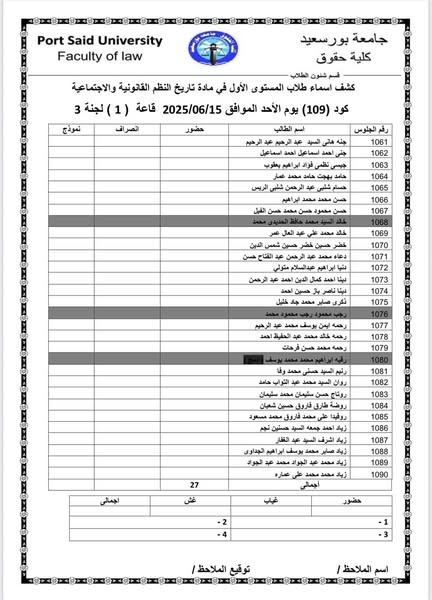 Port Said University
Faculty of law
جامعة بورسعيد
كلية حقوق
قسم شئون الطلاب
كشف اسماء طلاب المستوى الأول في مادة تاريخ النظم القانونية والاجتماعية
كود (109) يوم الأحد الموافق 2025/06/15 قاعة ( 1 ) لجنة 3
رقم الجلوس اسم الطالب حضور انصراف نموذج
1061 جنه هانى السيد عبد الرحيم عبد الرحيم
1062 جنى احمد اسماعيل احمد اسماعيل
1063 جيسى نظمى فؤاد ابراهيم يعقوب
1064 حامد بهجت حامد محمد عمار
1065 حسام شلبى عبد الرحمن شلبى الريس
1066 حسن محمد محمد ابراهيم
1067 حسن محمود حسن محمد حسن الفيل
1068 خالد السيد محمد حافظ الحديدى محمد
1069 خالد محمد علي عبد العال عمر
1070 خضر حسين خضر حسين شمس الدين
1071 دعاء محمد عبد الرحمن عبد الفتاح حسن
1072 دنيا ابراهيم عبدالسلام متولي
1073 دينا احمد كمال الدين احمد عبد الرحمن
1074 دينا ناصر باز حسين احمد
1075 ذكرى صابر محمد جاد خليل
1076 رجب محمود رجب محمود محمد
1077 رحمه ايمن يوسف محمد عبد الرحيم
1078 رحمه خالد محمد عبد الحفيظ احمد
1079 رحمه محمد حسن فرحات
1080 رقيه ابراهيم محمد محمد يوسف
1081 رنيم السيد حسنى محمد وفا
1082 روان السيد محمد عبد التواب حامد
1083 روناج حسن سليمان محمد سليمان
1084 روضة طارق فاروق حسين شعبان
1085 روفيدا على محمد فاروق محمد مسعود
1086 زياد احمد جمعه السيد حسنين نجم
1087 زياد اشرف السيد عبد الغفار
1088 زياد صابر محمد يوسف ابراهيم الجداوى
1089 زياد محمد عبد الجواد محمد عبد الجواد
1090 زياد محمد محمد علي عماره
أجمالى 27
حضور غياب غش اجمالى
1 - 2 -
3 - 4 -
اسم الملاحظ / توقيع الملاحظ /